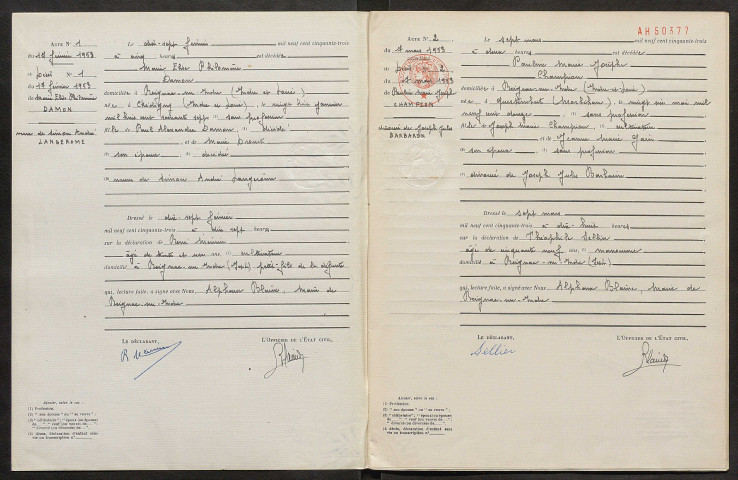 Acte N° 1
du 17 février 1953
Décès N° 1
du 17 février 1953
de Marie Elise Philomène
DAMON
veuve de Simon André
LANGEROME
Le dix-sept février mil neuf cent cinquante-trois
à cinq heures est décédée
Marie Elise Philomène
Damon
domiciliée à Reignac-sur-Indre (Indre et Loire)
née à Chédigny (Indre et Loire), le vingt six janvier
mil huit cent soixante sept (1) sans profession
fille de Paul Alexandre Damon, (1) décédé
et de Marie
(2) son épouse (1) décédée
(3) veuve de Simon André Langerome
Dressé le dix-sept février
mil neuf cent cinquante-trois à dix sept heures
sur la déclaration de René
âgé de trente et un ans, (1) cultivateur
domicilié à Reignac-sur-Indre (Indre) petit-fils de la défunte
qui, lecture faite, a signé avec Nous, Alphonse Blaive, Maire de
Reignac-sur-Indre
Le Déclarant,
L'Officier de l'État Civil,
Ajouter, selon le cas :
(1) Profession.
(2) "son épouse" ou "sa veuve" ;
(3) "célibataire" ; "époux (ou épouse)
de ... " "veuf (ou veuve) de ... " ;
"divorcé (ou divorcée) de ... "
AH 50377
Acte N° 2
du 7 mars 1953
Décès N° 2
du 7 mars 1953
de Pauline Marie Joseph
CHAMPION
divorcée de Joseph Jules
BARBARON
Le sept mars mil neuf cent cinquante-trois
à deux heures est décédée
Pauline Marie Joseph
Champion
domiciliée à Reignac-sur-Indre (Indre-et-Loire)
née à Questembert (Morbihan), le vingt six mai mil
neuf cent douze (1) sans profession
fille de Joseph Marie Champion, (1) cultivateur
et de Jeanne Marie
(2) son épouse (1) sans profession
(3) divorcée de Joseph Jules Barbaron
Dressé le sept mars
mil neuf cent cinquante-trois à dix huit heures
sur la déclaration de Théophile Sellier
âgé de cinquante neuf ans, (1) manoeuvre
domicilié à Reignac-sur-Indre (Indre)
qui, lecture faite, a signé avec Nous, Alphonse Blaive, Maire de
Reignac-sur-Indre
Le Déclarant,
L'Officier de l'État Civil,
Sellier
Blaive
Ajouter, selon le cas :
(1) Profession.
(2) "son épouse" ou "sa veuve" ;
(3) "célibataire", "époux (ou épouse)
de ... " "veuf (ou veuve) de ... " ;
"divorcé (ou divorcée) de ... "